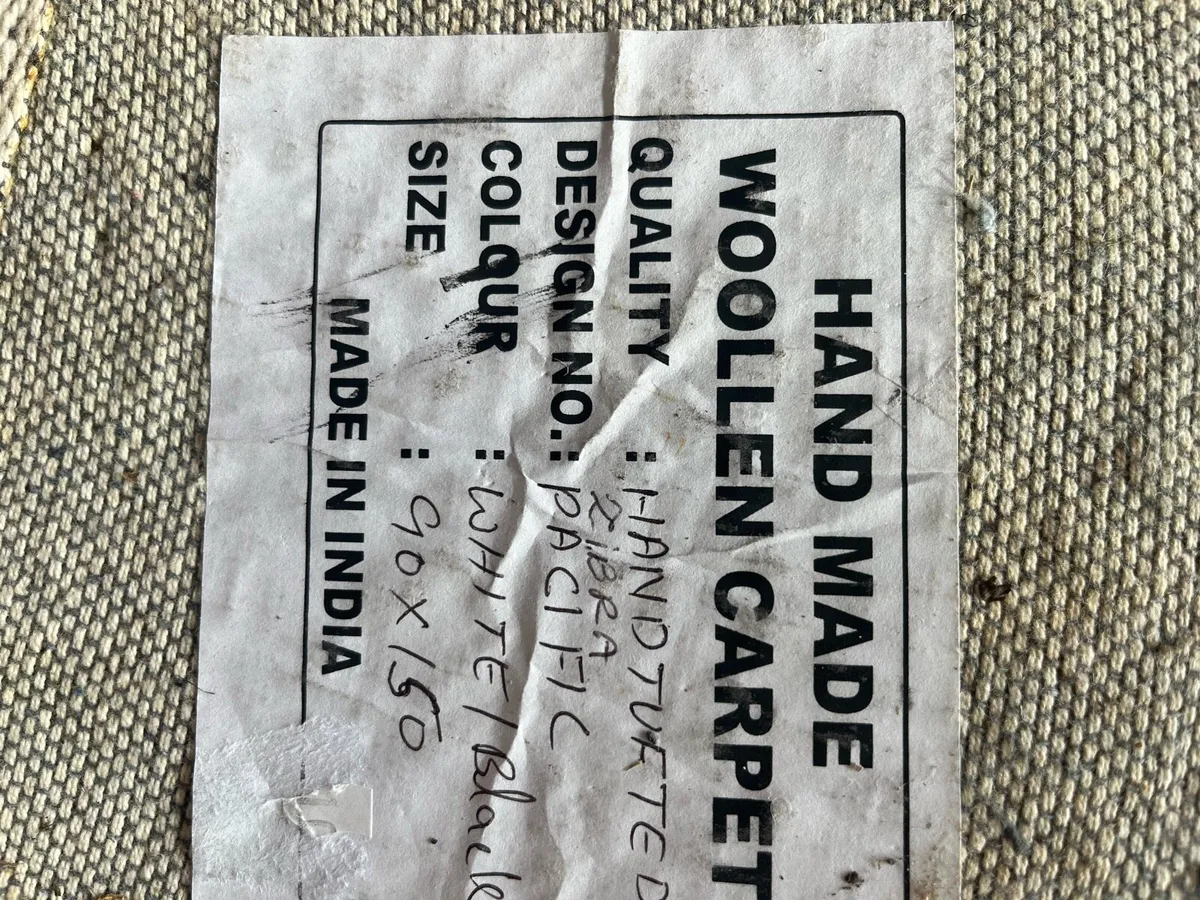 HAND MADE
WOOLLEN CARPET
QUALITY : HAND TUFTED
ZiBRA
DESIGN NO.: PACIFIC
COLOUR : WHITE/Black
SIZE : 90X150
MADE IN INDIA